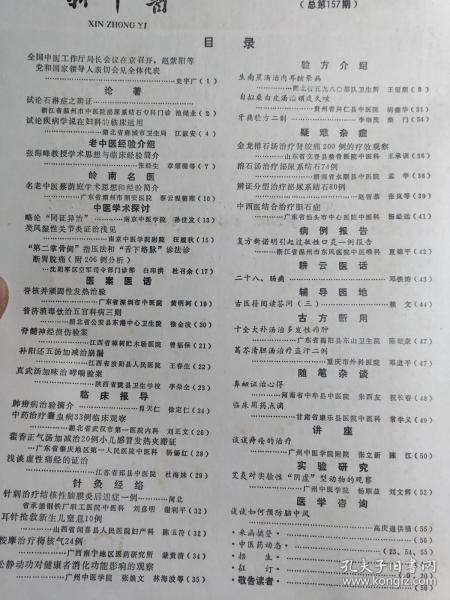 新中医
(总第157期)
XIN ZHONG YI
目 录
全国中医工作厅局长会议在京召开，赵紫阳等
党和国家领导人亲切会见全体代表
史宇广(1)
论 著
试论石淋症之辨证
浙江省温州市中医院泌尿系结石专科门诊 池绳业(2)
试论疾病学说在妇科的临床运用
湖北省鄂城市卫生局 江淑安(4)
老中医经验介绍
张海峰教授学术思想与临床经验简介
岭南名医
名老中医蔡仰庭学术思想和经验简介
广东省潮州市潮安医院
中医学术探讨
略论“同证异治”
南京中医学院 孙世发(13)
类风湿性关节炎证治浅见
南京中医学院附院 汪履秋(15)
“第二掌骨侧”指压法和“舌下络脉”诊法诊
断胃脘痛(附206例分析)
沈阳军区空军司令部门诊部 白印洪 杜召会(17)
医案医话
脊椎并顽固性发热治验
广东省深圳市中医院 黄明河(19)
普济消毒饮治五官科病三则
湖北省公安县东港中心卫生院 徐金波(20)
脊髓神经损伤验案
江西省樟树肥木场医院 曾福保(21)
补阳还五汤加减治崩漏
江西省波阳县人民医院 王春生(22)
真武汤加味治哮喘验案
陕西省陇县卫生学校 李荣全(23)
临床报导
肺痨病治验简介 肖天仁 徐定仁(24)
中药治疗囊虫病33例临床观察
湖北省武汉市第一医院内科 刘正文(26)
藿香正气汤加减治20例小儿感冒发热夹滞证
广东省肇庆地区第一人民医院中医科 杨锡红(28)
浅谈虚性痛经的证治
江苏省邳县中医院 杜梅妹(29)
针灸经络
针刺治疗结核性脑膜炎后遗症一例 河北
省承德钢铁厂职工医院中医科 刘喜明 谢利平(32)
耳针抢救新生儿窒息10例
山西省闻喜县人民医院妇产科 陈玉符(32)
按摩治疗梅核气24例
广西南宁地区医药研究所 蒙贵清(34)
松静动对健康者消化功能影响的观察
广州中医学院 张焕文 林海波等(35)
验方介绍
生南星汤治内耳眩晕病
湖北省五九八〇部队卫生所 王朝顺(8)
自拟桑白皮汤治顽痰久咳
贵州省兴仁县中医院 胡德华(31)
牙痛验方二则 李相茂 柴门(54)
疑难杂症
金龙排石汤治疗肾绞痛200例的疗效观察
山东省文登县整骨医院中医科 王承训(36)
排石汤治疗泌尿系结石74例
湖南省永顺县中医院 孟华(38)
辨证分型治疗泌尿系结石80例
赵留春 张凤等(39)
中西医结合治疗胆石症
广东省汕头市中心医院中医科 杨嵘远(41)
病例报告
复方黄诺明引起过敏性口炎一例报告
浙江省温州市东风医院中医喉科 夏锦平(42)
耕云医话
二十八、肠痈 邓铁涛(43)
辅导园地
古医籍阅读答问(三) 赖文(44)
古方新用
十全大补汤治多发性疖肿
广东省揭阳县东山卫生院 陈楚豪(47)
蒿芩清胆汤治疗盗汗二例
重庆市外科医院 邓道平(47)
随笔杂谈
鼻衄证治心得
河南省中牟县中医院 朱西友 祝长春(48)
临床用药点滴
甘肃省康乐县医院中医科 常学义(49)
讲 座
谈谈痔疮的治疗
广州中医学院附院 张立新 陈江(50)
实验研究
艾灸对实验性“阴虚”型动物的观察
广州中医学院 杨顺益 刘文辉(52)
医学咨询
谈谈如何预防脑中风
高庆通供稿(55)
·来稿摘登· (56)
·中医药动态· (23，54，55)
·招 生·
·征 订·
·敬告读者· (56)